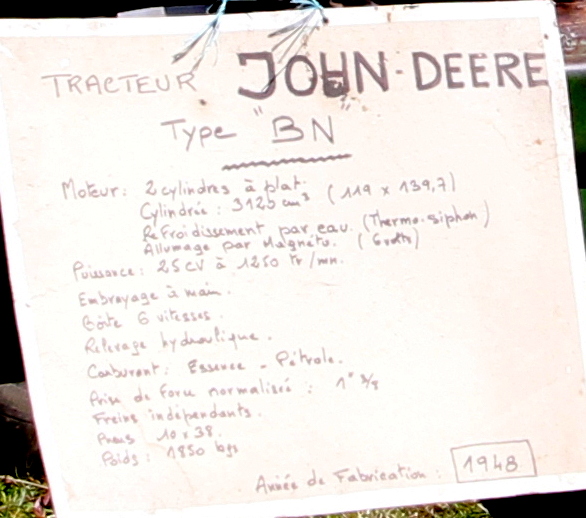 TRACTEUR JOHN-DEERE
Type "BN"
Moteur: 2 cylindres à plat.
Cylindrée : 3125 cm³ (119 x 139,7)
Refroidissement par eau. (Thermo-siphon)
Allumage par Magnéto. (6 volts)
Puissance: 25 CV à 1250 Tr/mn.
Embrayage à main.
Boîte 6 vitesses.
Relevage hydraulique.
Carburant: Essence - Pétrole.
Prise de force normalisée : 1" 3/8
Freins indépendants.
Pneus 10 x 38.
Poids : 1850 kgs
Année de Fabrication : 1948